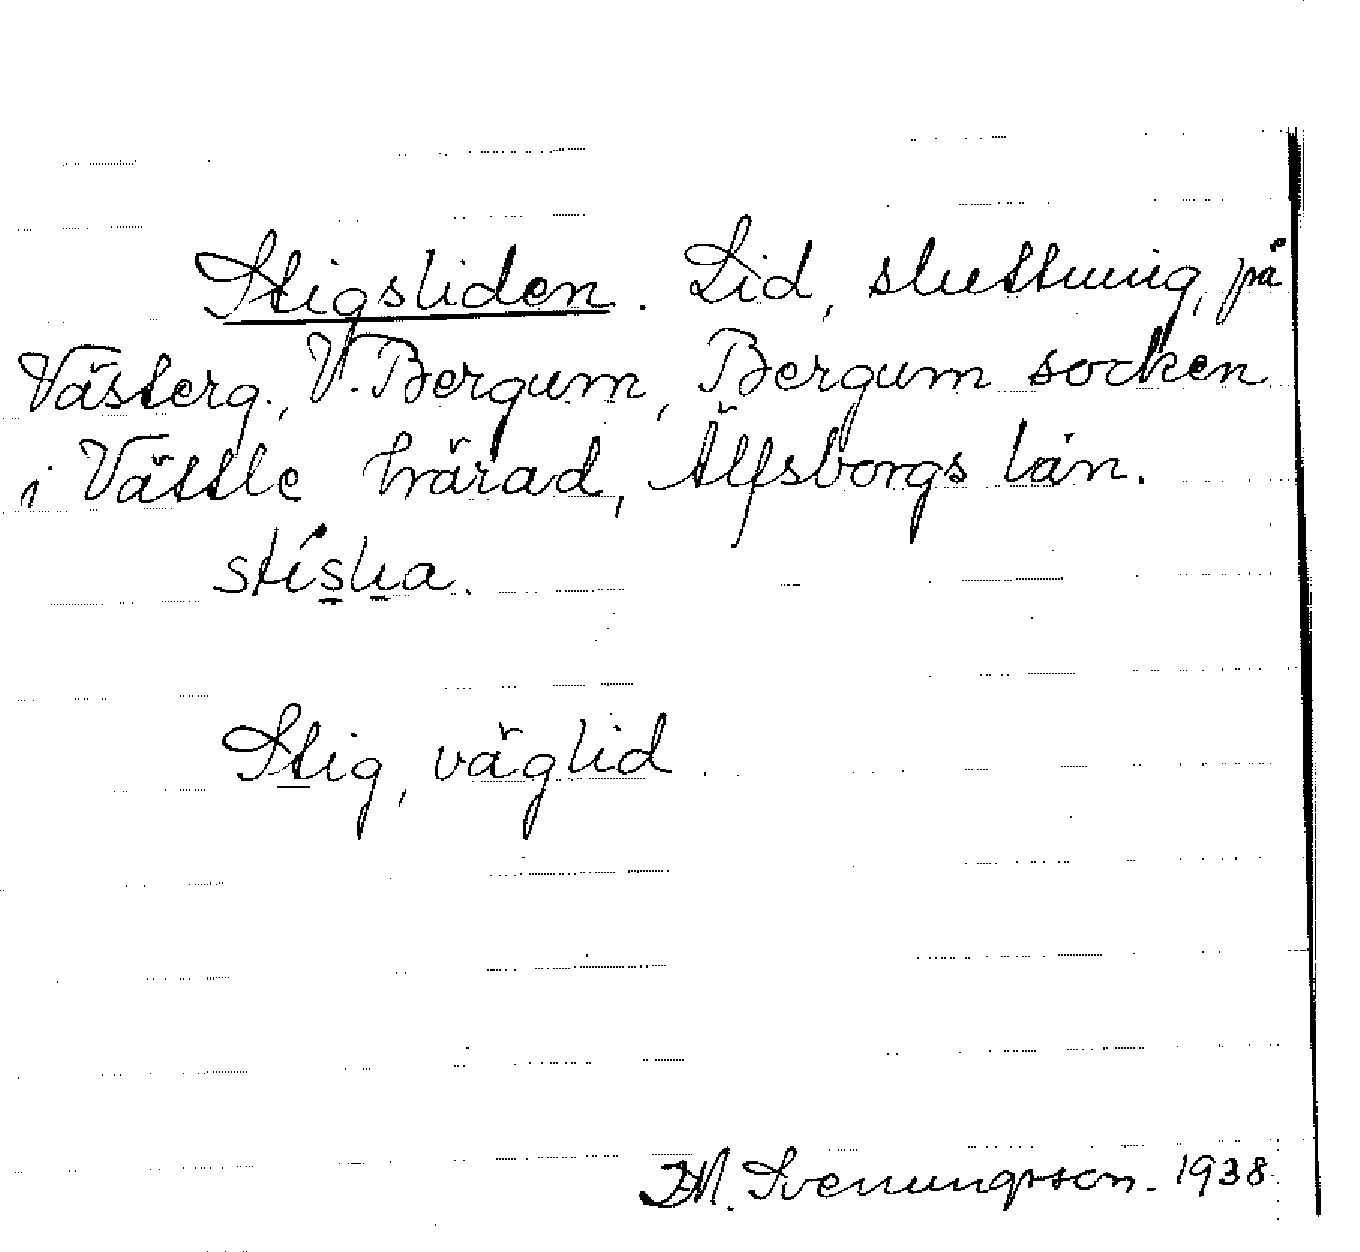 Stigsliden. Lid, sluttning, på
Västerg., V. Bergum, Bergum socken
i Vättle härad, Älfsborgs län.
Stig, väglid
Svenungsson. 1938